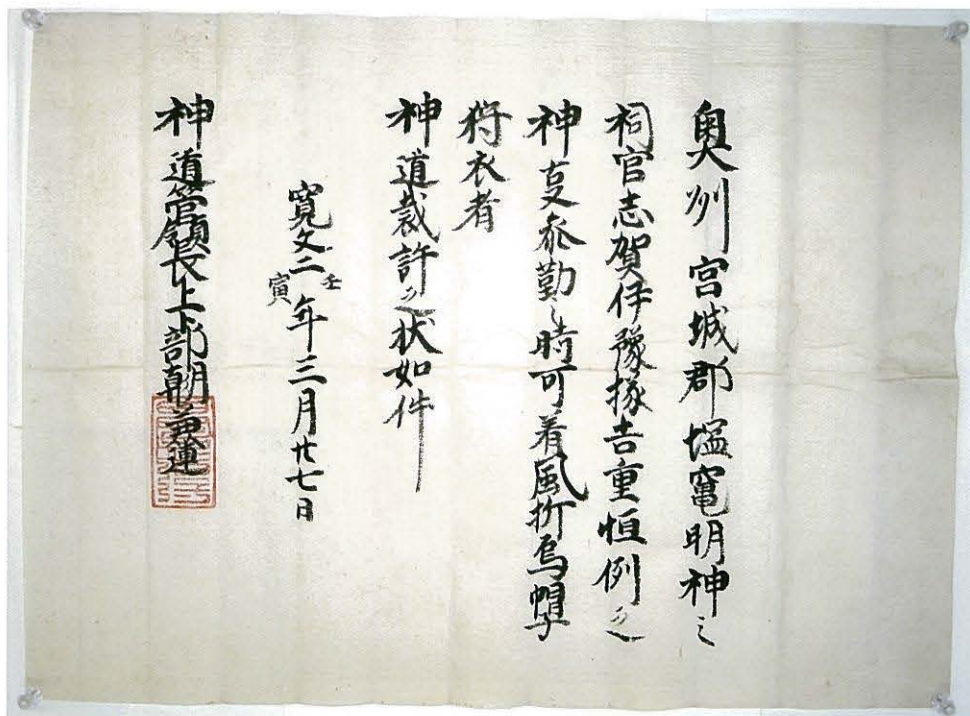 奥州宮城郡塩竈明神之
祠官志賀伊豫掾吉重恒例之
神事参勤之時可着風折烏帽子
狩衣者
神道裁許之状如件
寛文二壬寅年三月廿七日
神道管領長上卜部朝臣兼連